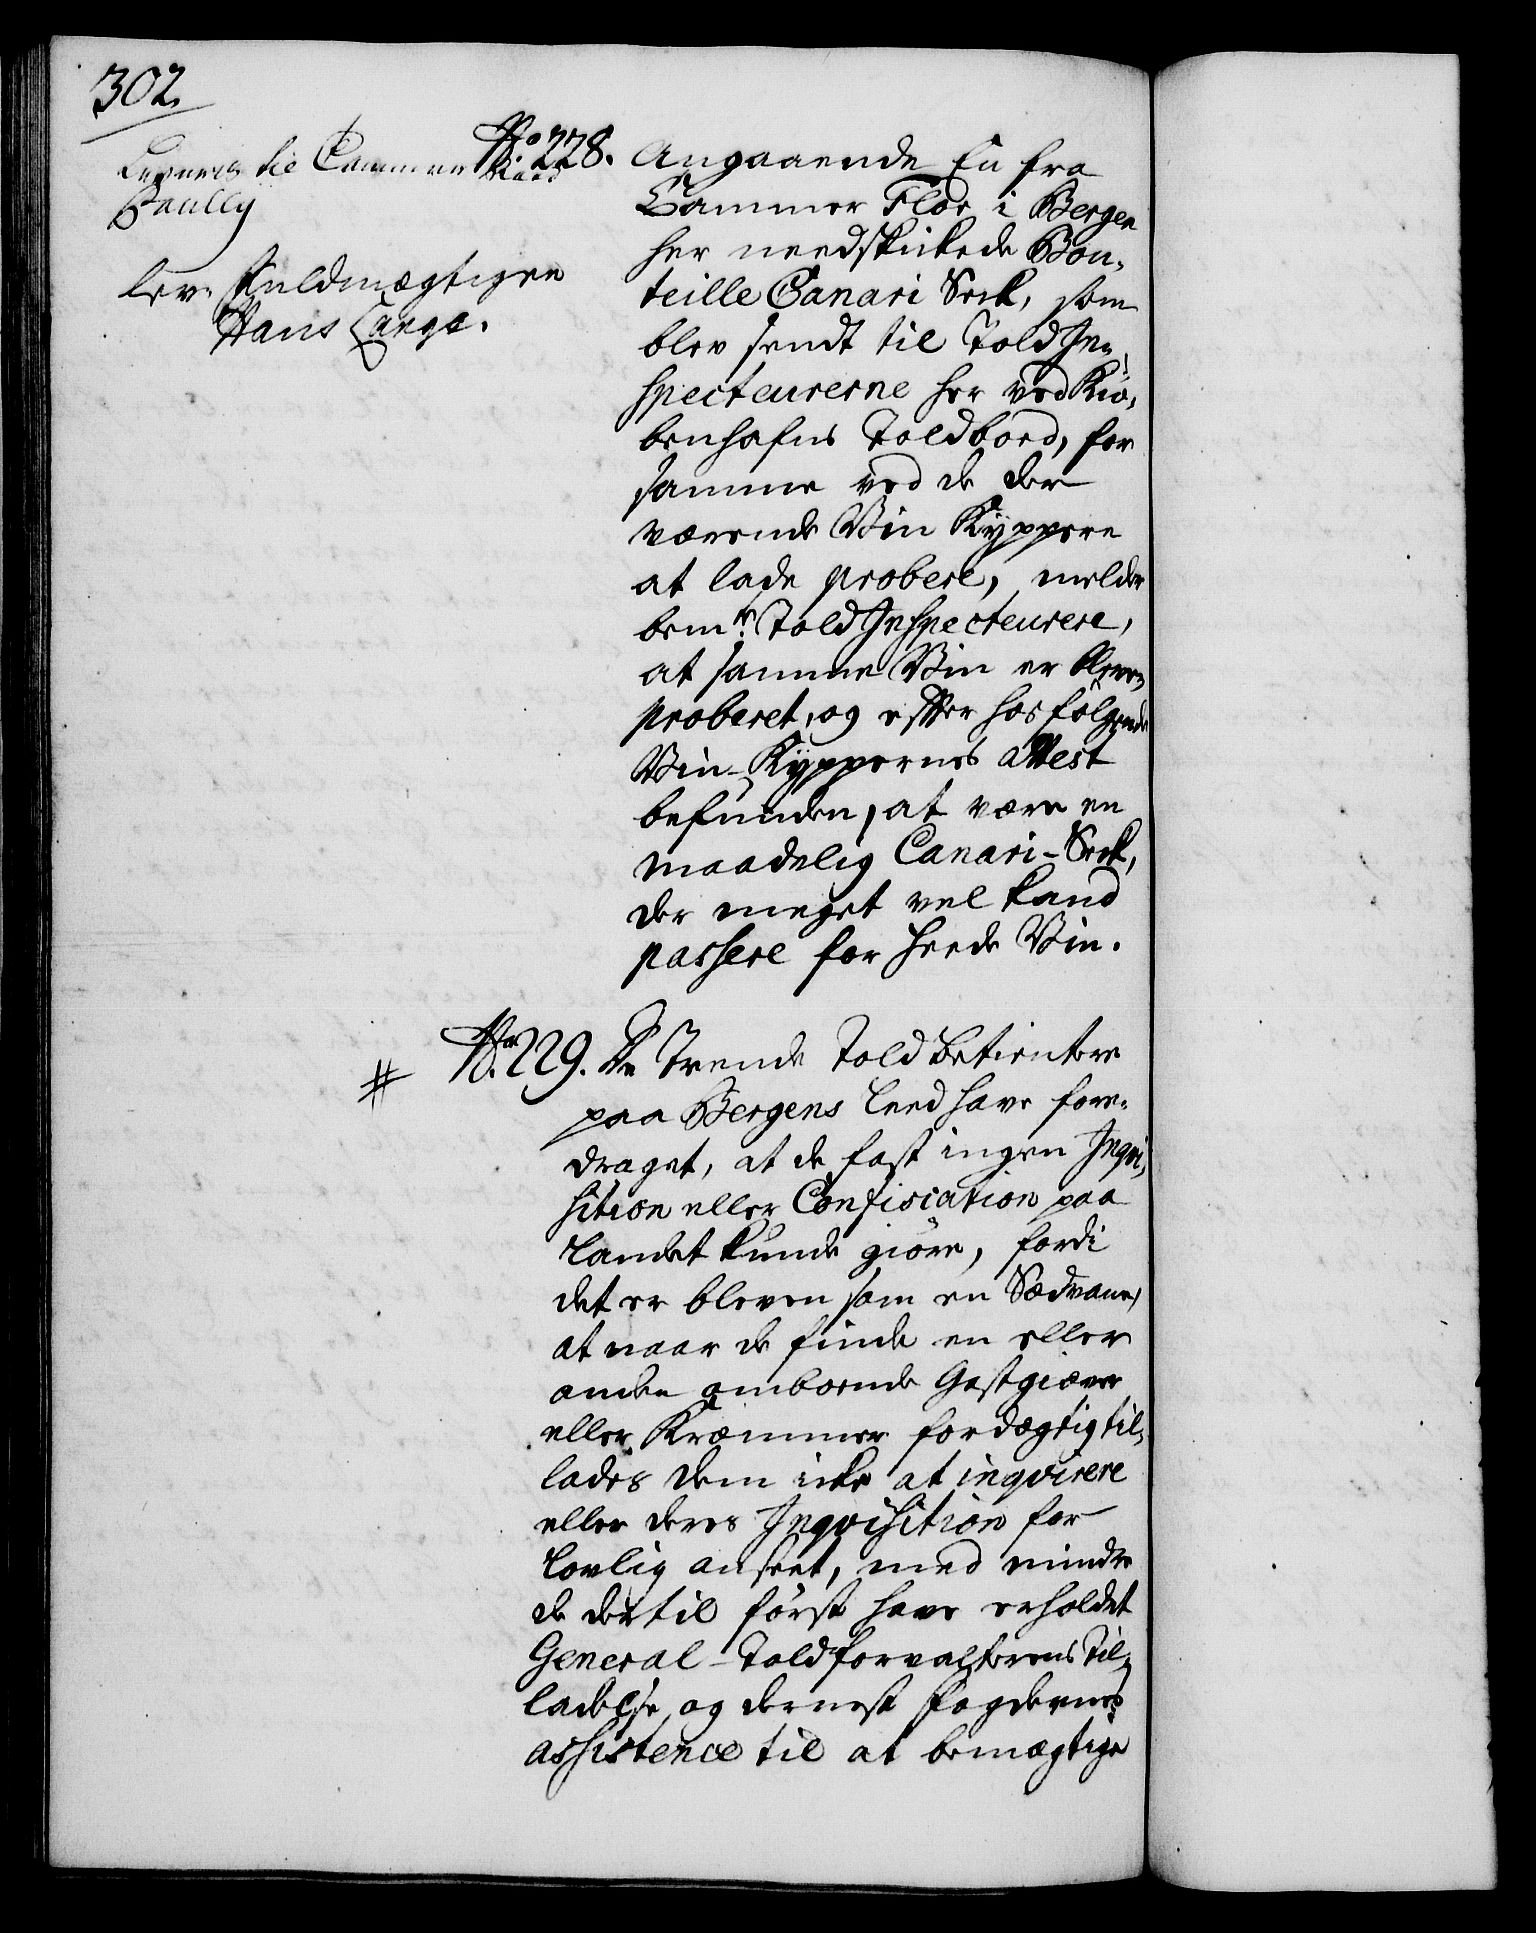 302.
Leveres til Cammer Raad
Paully
Lev. Fuldmægtigen
Hans Lange.
No. 228. Angaaende En fra
Cammer Flor i Bergen
her needskickede Bou-
teille Canari Seck, som
blev sendt til Told In-
specteurerne her ved Kiø-
benhafns Toldbord, for
samme ved de der
værende Vin Kyppere
at lade probere, melder
bemte. Told Inspecteurere,
at samme Viin er bleven
proberet, og effter hosfølgende
Vin-Kyppernes attest
befunden, at være en
maadelig Canari-Seck,
der meget vel kand
passere for heede Vin.
# No. 229. De Trende Told Betientere
paa Bergens Leed have fore-
draget, at de fast ingen Inqvi-
sition eller Confisication paa
Landet kunde giøre, fordi
det er bleven som en Sædvane,
at naar de finde en eller
anden omboende Gestgiæver
eller Kræmmer fordægtig til-
lades dem icke at inqvirere
eller deres Inqvisition for
Lovlig anseet, med mindre
de dertil først have erholdet
General-Toldforvalterens Til-
ladelse, og dernest Fogdernes
assistence til at bemægtige